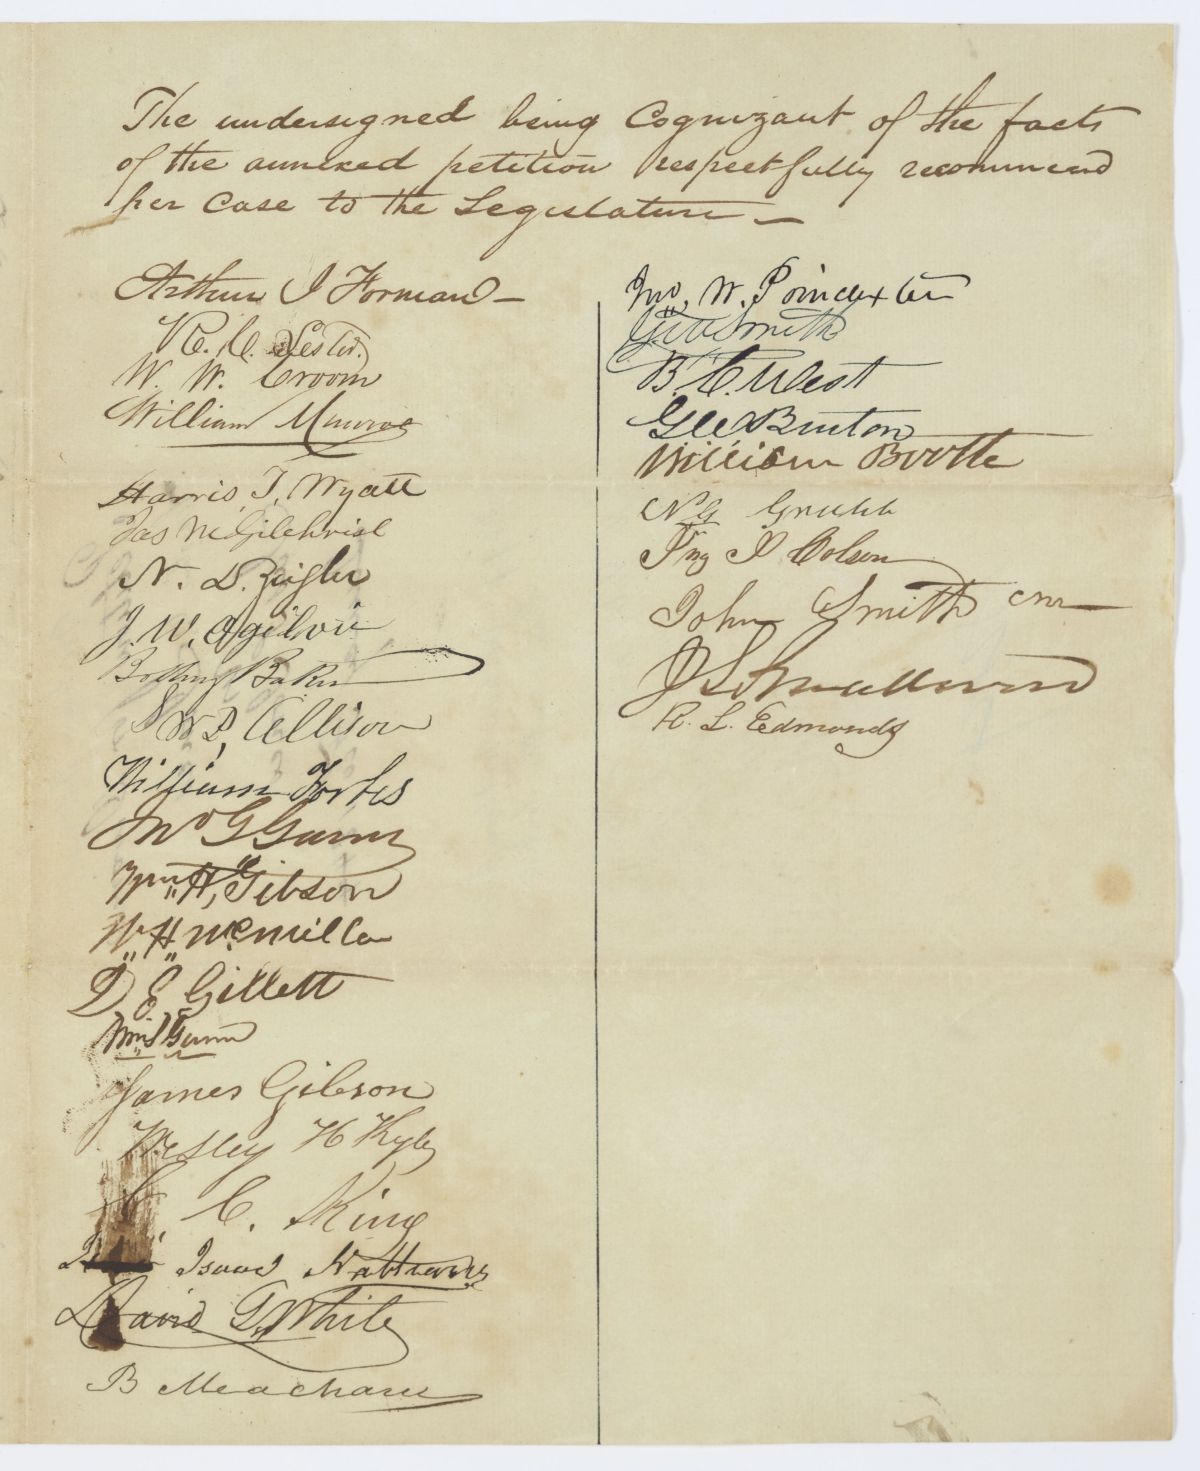 The undersigned being Cognizant of the facts
of the annexed petition respectfully recommend
her Case to the Legislature —
Arthur I Forman —
R. C. Lester.
W. W. Croom
William Munroe
Harris, T, Wyatt
Jas McGilchrist
N. D. Zeigler
J. W. Ogilvie
Bolling Baker
S W D, Allison
William Forbes
Jno G Gunn
Wm, H, Gibson
W H McMillan
D E Gillett
Wm Gunn
James Gibson
Wesley H Kyle
C. King
Isaac
David G. White
B Meacham
Jno, W. Poindexter
Smith
B. C. West
Bruton
William Booth
N G Grubb
I Colson
John Smith
J S
R. L. Edmonds